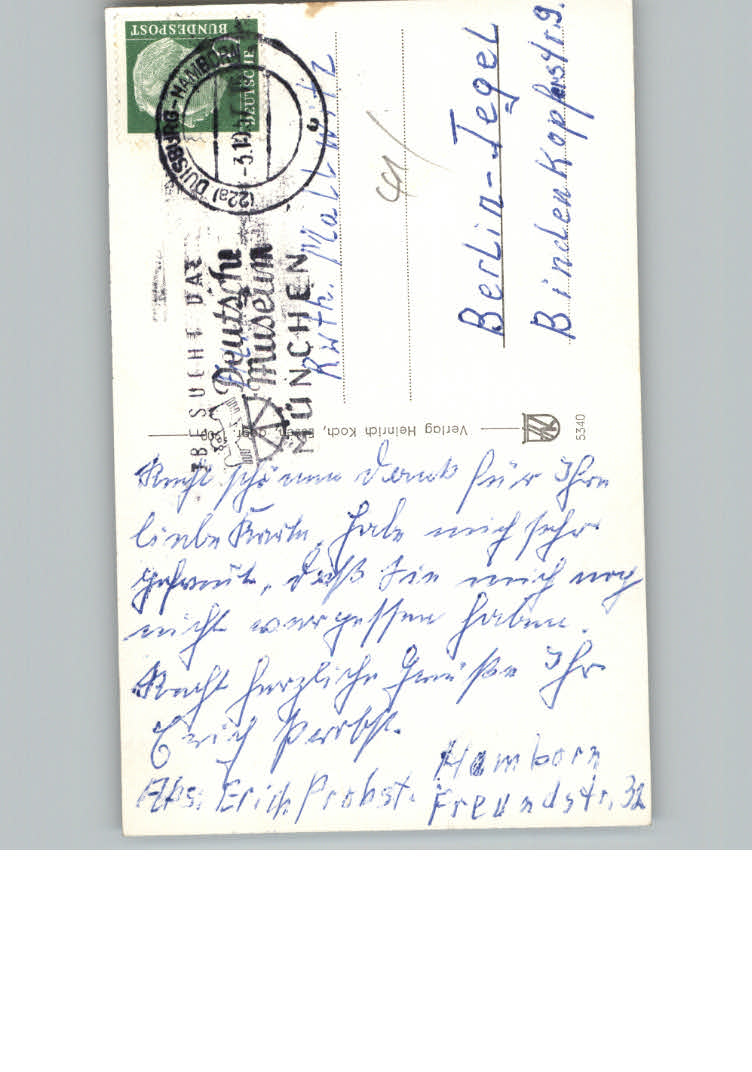 Recht schönen Dank für Ihre
liebe Karte, habe mich sehr
gefreut, daß Sie mich noch
nicht vergessen haben.
Recht herzliche Grüße Ihr
Erich Probst.
Abs: Erich Probst. Hamborn
Freundstr. 32
Ruth.
Berlin-Tegel
Bindenkopfstr 9.
DEUTSCHE
BUNDESPOST
(22a) DUISBURG-HAMBORN
-3.10.
BESUCHT DAS
Deutsche
Museum
MÜNCHEN
Verlag Heinrich Koch,
5340